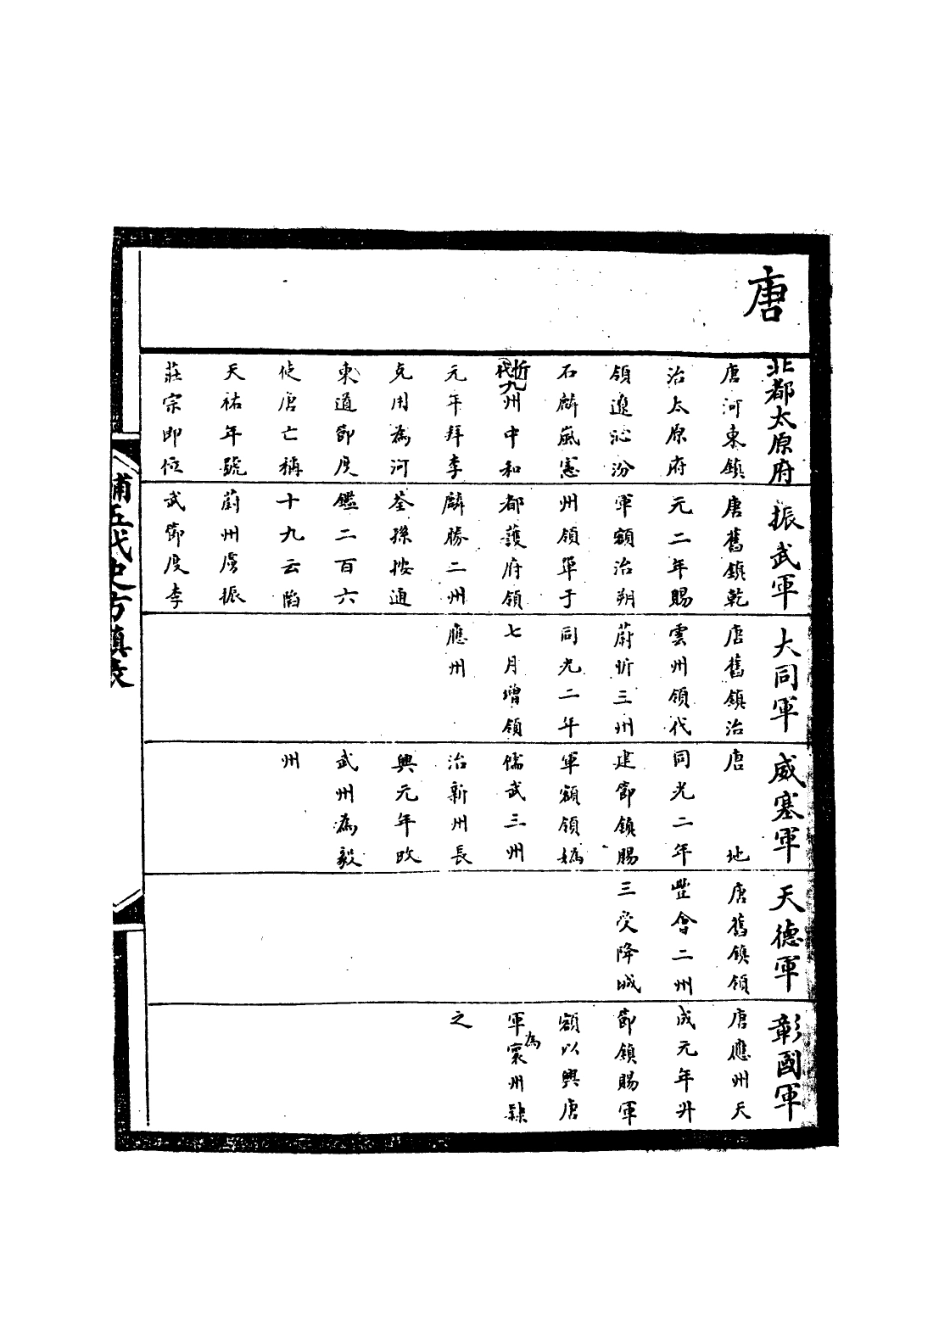 唐
北都太原府
唐河東鎮
治太原府
領遼沁汾
石麟嵐憲
忻代九州中和
元年拜李
克用為河
東道節度
使唐亡稱
天祐年號
莊宗即位
振武軍
唐舊鎮乾
元二年賜
軍額治朔
州領單于
都護府領
麟勝二州
荃孫按通
鑑二百六
十九云陷
蔚州虜振
武節度李
大同軍
唐舊鎮治
雲州領代
蔚忻三州
同光二年
七月增領
應州
威塞軍
唐　地
同光二年
建節鎮賜
軍額領媯
儒武三州
治新州長
興元年改
武州為毅
州
天德軍
唐舊鎮領
豐會二州
三受降城
彰國軍
唐應州天
成元年升
節鎮賜軍
額以興唐
軍為寰州隸
之
補五代史方鎮表